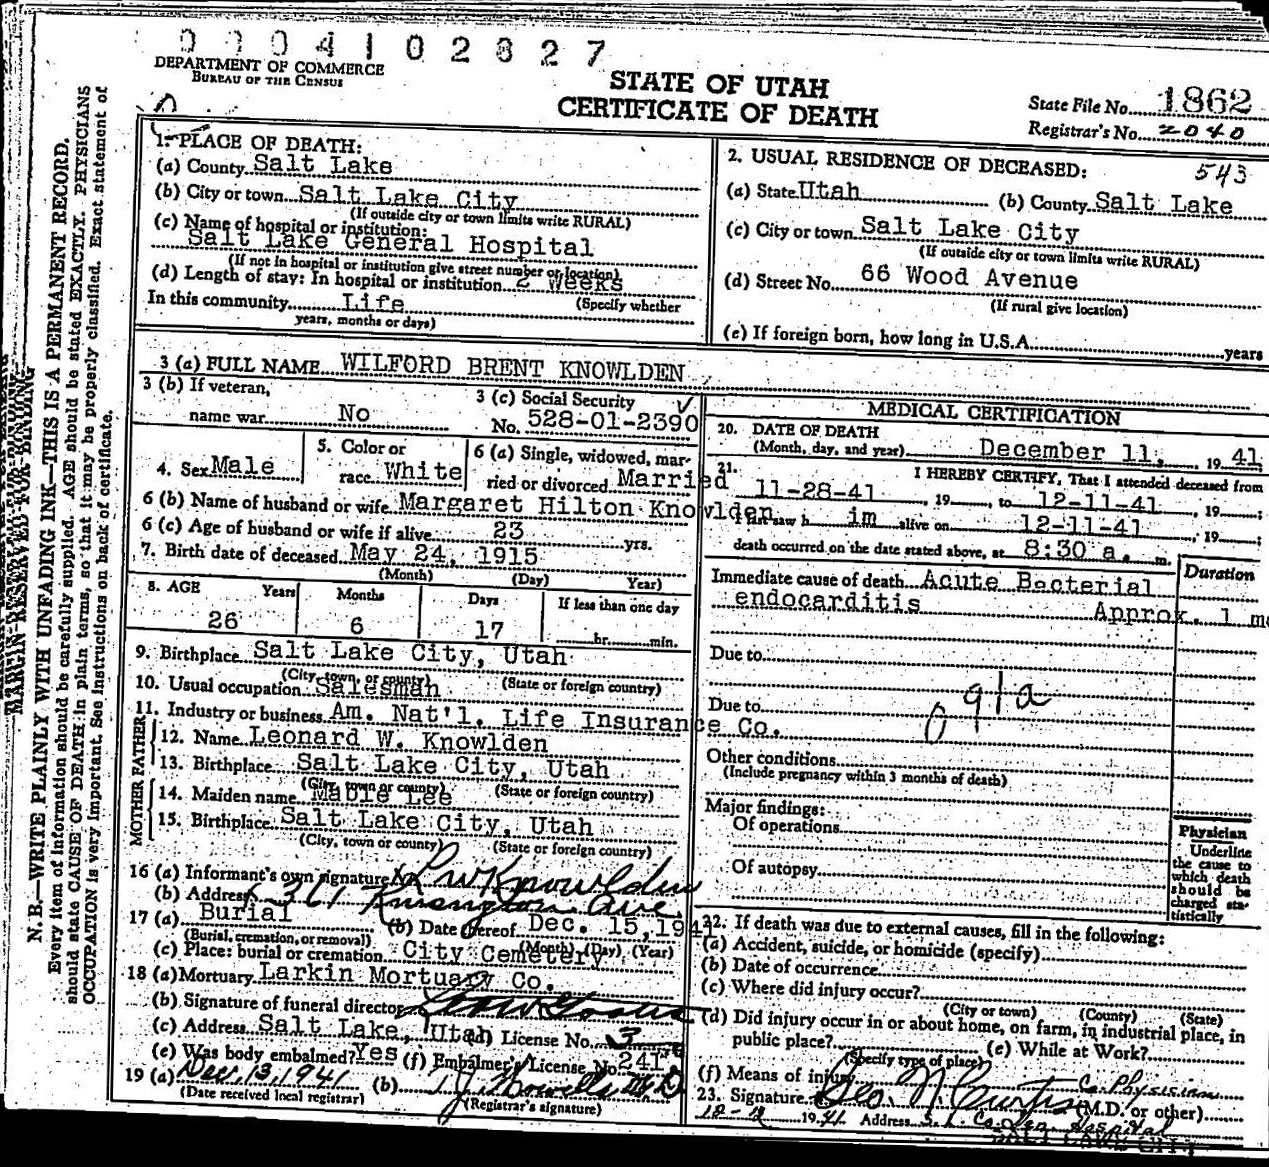 0004102827
DEPARTMENT OF COMMERCE
BUREAU OF THE CENSUS
STATE OF UTAH
CERTIFICATE OF DEATH
State File No. 1862
Registrar's No. 2040
MARGIN RESERVED FOR BINDING
N. B.—WRITE PLAINLY WITH UNFADING INK—THIS IS A PERMANENT RECORD.
Every item of information should be carefully supplied. AGE should be stated EXACTLY. PHYSICIANS
should state CAUSE OF DEATH in plain terms, so that it may be properly classified. Exact statement of
OCCUPATION is very important. See instructions on back of certificate.
1. PLACE OF DEATH:
(a) County Salt Lake
(b) City or town Salt Lake City
(If outside city or town limits write RURAL)
(c) Name of hospital or institution:
Salt Lake General Hospital
(If not in hospital or institution give street number or location)
(d) Length of stay: In hospital or institution 2 Weeks
In this community Life (Specify whether
years, months or days)
2. USUAL RESIDENCE OF DECEASED: 543
(a) State Utah (b) County Salt Lake
(c) City or town Salt Lake City
(If outside city or town limits write RURAL)
(d) Street No. 66 Wood Avenue
(If rural give location)
(e) If foreign born, how long in U.S.A. years
3 (a) FULL NAME WILFORD BRENT KNOWLDEN
3 (b) If veteran,
name war No
3 (c) Social Security
No. 528-01-2390
4. Sex Male
5. Color or
race White
6 (a) Single, widowed, mar-
ried or divorced Married
6 (b) Name of husband or wife Margaret Hilton Knowlden
6 (c) Age of husband or wife if alive 23 yrs.
7. Birth date of deceased May 24, 1915
(Month) (Day) Year)
8. AGE Years Months Days If less than one day
26 6 17 hr. min.
9. Birthplace Salt Lake City, Utah
(City, town, or county) (State or foreign country)
10. Usual occupation Salesman
11. Industry or business Am. Nat'l. Life Insurance Co.
FATHER
12. Name Leonard W. Knowlden
13. Birthplace Salt Lake City, Utah
(City, town or county) (State or foreign country)
MOTHER
14. Maiden name Mable Lee
15. Birthplace Salt Lake City, Utah
(City, town or county) (State or foreign country)
16 (a) Informant's own signature L W Knowlden
(b) Address 361 Kensington Ave.
17 (a) Burial (b) Date thereof Dec. 15, 1941
(Burial, cremation, or removal) (Month) (Day) (Year)
(c) Place: burial or cremation City Cemetery
18 (a) Mortuary Larkin Mortuary Co.
(b) Signature of funeral director
(c) Address Salt Lake, Utah (d) License No. 3
(e) Was body embalmed? Yes (f) Embalmer's License No. 241
19 (a) Dec. 13, 1941 (b)
(Date received local registrar) (Registrar's signature)
MEDICAL CERTIFICATION
20. DATE OF DEATH
(Month, day, and year) December 11, 1941
21. I HEREBY CERTIFY, That I attended deceased from
11-28-41, 19 , to 12-11-41, 19 ;
I last saw h im alive on 12-11-41, 19 ;
death occurred on the date stated above, at 8:30 a. m.
Duration
Immediate cause of death Acute Bacterial
endocarditis Approx. 1 mo
Due to
Due to 91a
Other conditions
(Include pregnancy within 3 months of death)
Major findings:
Of operations
Of autopsy
Physician
Underline
the cause to
which death
should be
charged sta-
tistically
22. If death was due to external causes, fill in the following:
(a) Accident, suicide, or homicide (specify)
(b) Date of occurrence
(c) Where did injury occur?
(City or town) (County) (State)
(d) Did injury occur in or about home, on farm, in industrial place, in
public place? (e) While at Work?
(Specify type of place)
(f) Means of injury Co. Physician
23. Signature Geo. N. Curtis (M.D. or other)
12-12 1941 Address S. L. Co. Gen. Hospital
SALT LAKE CITY